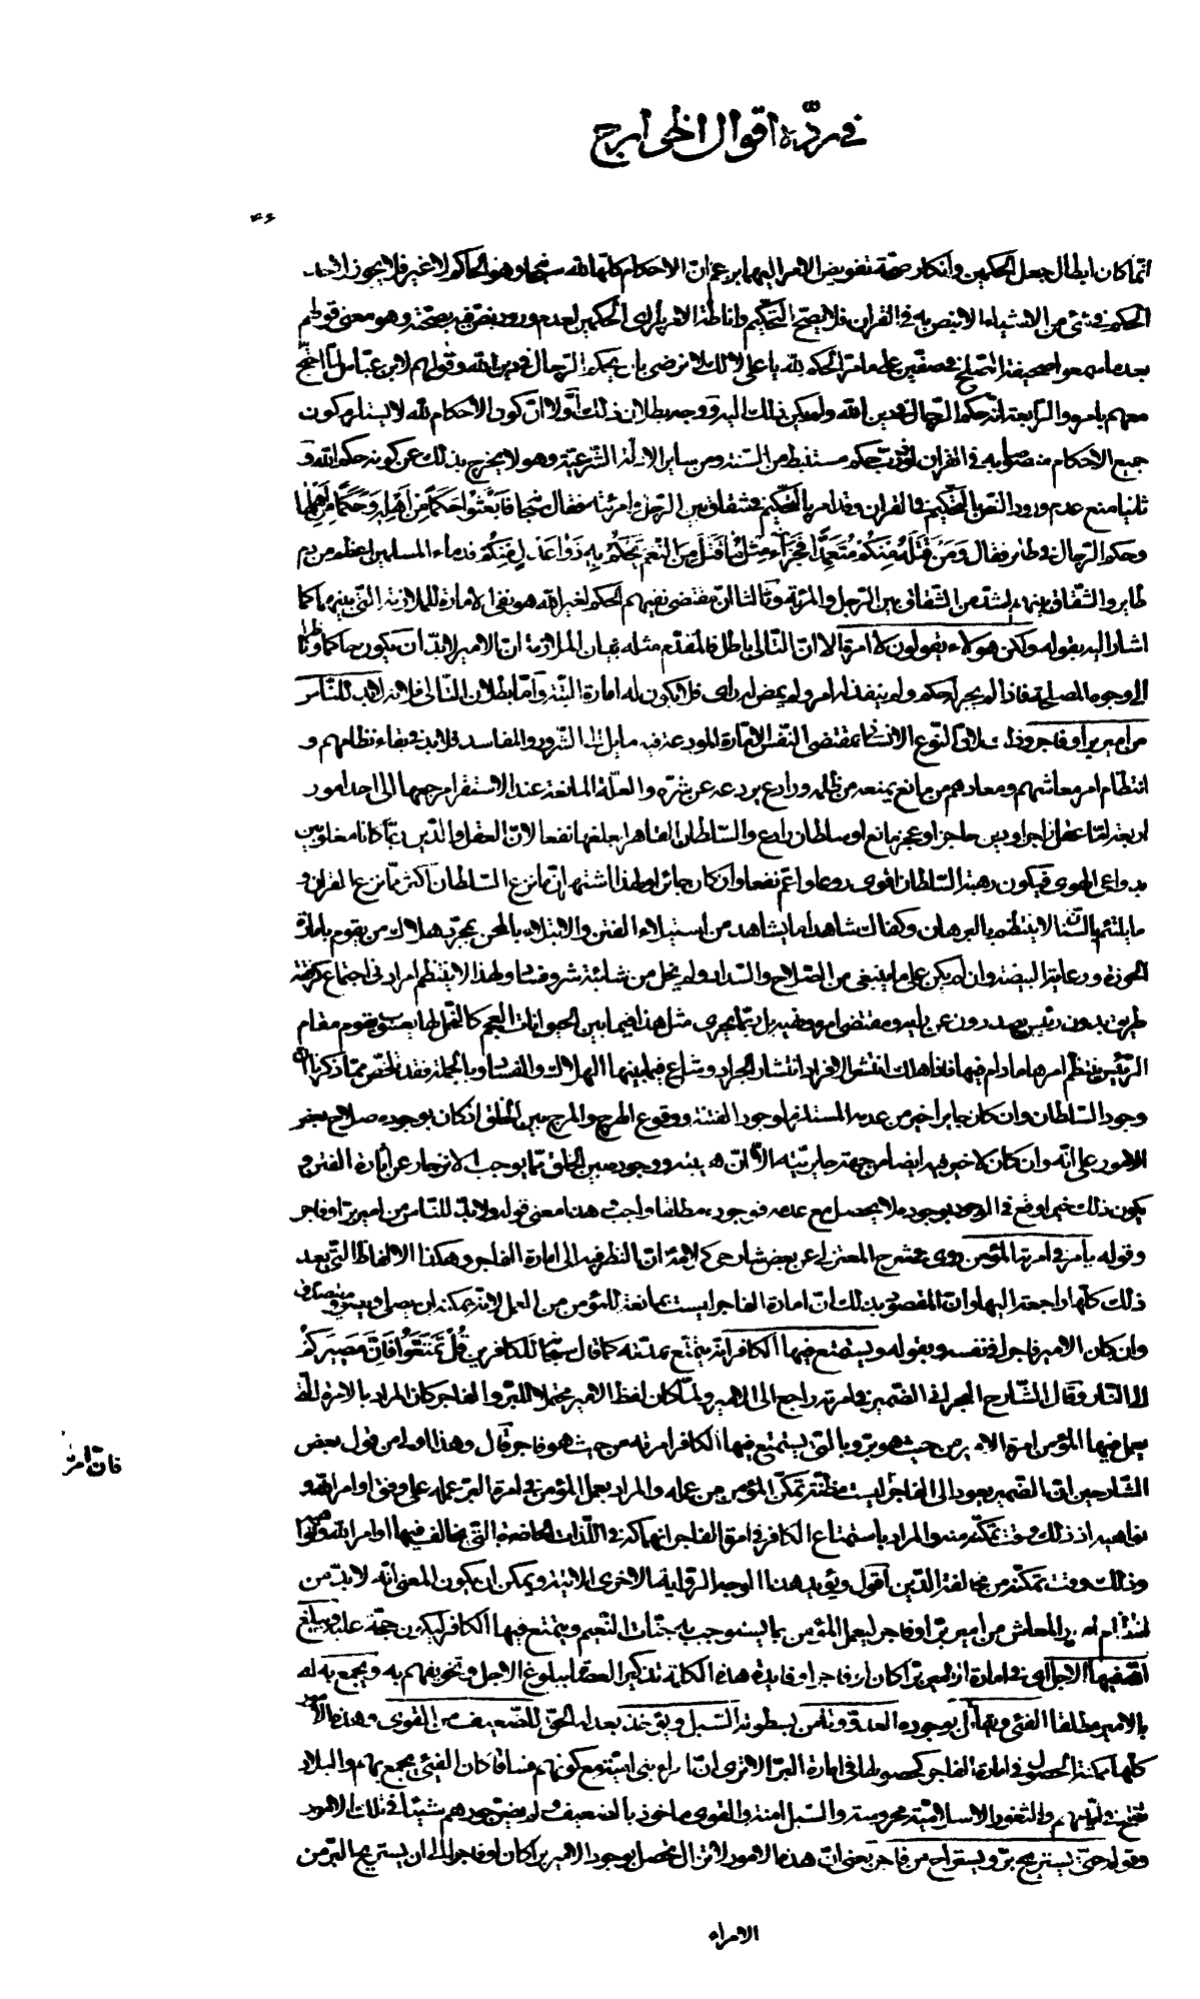 في ردّه اقوال الخوارج
۴۶
انّما كان ابطال جعل الحكمين وانكار صحّة تفويض الامر اليهما بزعم انّ الاحكام كلّها لله سبحانه وهو الحاكم لا غير فلا يجوز لاحد
الحكم في شئ من الاشياء الا بنصّ به في القران فلا يصحّ التحكيم واناطة الامر الى الحكمين لعدم ورود نصّ فيه بصحّته وهو معنى قولهم
بعد ما سمعوا صحيفة الصّلح في صفّين على ما مرّ الحكم لله يا علي لا لك لا نرضى بان يحكم الرّجال في دين الله وقولهم لابن عبّاس لمّا احتجّ
معهم بامره والرّابعة انّه حكم الرّجال في دين الله ولم يكن ذلك اليه ووجه بطلان ذلك اوّلا انّ كون الاحكام لله لا يستلزم كون
جميع الاحكام منصوصا به في القران فربّ حكم مستنبط من السّنة ومن ساير الادلّة الشّرعيّة وهو لا يخرج بذلك عن كونه حكم الله و
ثانيا منع عدم ورود النصّ بالتّحكيم في القران وقد امر بالتّحكيم في شقاق بين الرّجل وامرئته فقال سبحانه فَابْعَثُوا حَكَماً مِنْ اَهْلِهِ وَحَكَماً مِنْ اَهْلِها
وحكم الرّجال في طاير فقال وَمَنْ قَتَلَهُ مِنْكُمْ مُتَعَمِّداً فَجَزاءٌ مِثْلُ ما قَتَلَ مِنَ النَّعَمِ يَحْكُمُ بِهِ ذَوا عَدْلٍ مِنْكُمْ فدماء المسلمين اعظم من دم
طاير والشّقاق بينهم اشدّ من الشّقاق بين الرّجل والمرئة وثالثا انّ مقتضى نفيهم الحكم لغير الله هو نفي الامارة للملازمة الّتي بينهما كما
اشار اليه بقوله ولكن هولاء يقولون لا امرة الا انّ التالي باطل فالمقدّم مثله بيان الملازمة انّ الامير لابدّ ان يكون حاكما وناظرا
الى وجوه المصلحة فاذا لم يجز له حكم ولم ينفذ له امر ولم يمض له راى فلا يكون له امارة البتّة وامّا بطلان التالي فلانه لابدّ للنّاس
من امير برّ او فاجر وذلك لانّ النّوع الانسانى بمقتضى النّفس الامّارة المودعة فيه مايل الى الشّرور والمفاسد فلابدّ في بقاء نظامهم و
انتظام امر معاشهم ومعادهم من مانع يمنعه من ظلمه ورادع يردعه عن شرّه والعلّة المانعة عند الاستقراء مرجعها الى احد امور
اربعة امّا عقل زاجر او دين حاجز او عجز مانع او سلطان رادع والسّلطان القاهر ابلغها نفعا لانّ العقل والدّين ربّما كانا مغلوبين
بدواعى الهوى فيكون رهبة السّلطان اقوى ردعا واعمّ نفعا وان كان جائرا ولهذا اشتهر انّ ما نزع السّلطان اكثر ممّا نزع القران و
ما يلتئم بالسّنان لا ينتظم بالبرهان وكفاك شاهدا ما يشاهد من استيلاء الفتن والابتلاء بالمحن بمجرّد هلاك من يقوم بامارة
الحوزة ورعاية البيضة وان لم يكن على ما ينبغي من الصّلاح والسّداد ولم يخل من شائبة شرّ وفساد ولهذا لا ينتظم امر ادنى اجتماع كرفقة
طريق بدون رئيس يصدرون عن رايه ومقتضى امره ونهيه بل ربّما يجرى مثل هذا فيما بين الحيوانات العجم كالنّحل لها يعسوب يقوم مقام
الرّئيس ينتظم امرها ما دام فيها فاذا هلك انتشر الافراد انتشار الجراد وشاع فيما بينها الهلاك والفساد وبالجملة فقد تلخّص ممّا ذكرنا ان
وجود السّلطان وان كان جايرا خير من عدمه المستلزم لوجود الفتنة ووقوع الهرج والمرج بين الخلق اذ كان بوجوده صلاح بعض
الامور على انّه وان كان لا خير فيه ايضا من جهة جايريّته الا انّ هيبته ووجوده بين الخلق ممّا يوجب الانزجار عن اثارة الفتن و
يكون ذلك خيرا وقع في الوجود بوجوده لا يحصل مع عدمه فوجوده مطلقا واجب هذا معنى قوله ولابدّ للنّاس من امير برّ او فاجر
وقوله يعمل في امرته المؤمن روى في شرح المعتزلى عن بعض شارحى كلامه انّ النظر فيه الى امارة الفاجر وهكذا الالفاظ الّتي بعد
ذلك كلّها راجعة اليها وانّ المقصود بذلك انّ امارة الفاجر ليست بمانعة للمؤمن من العمل لانّه يمكنه ان يصلى ويصوم ويتصدّق
وان كان الامير فاجرا في نفسه وبقوله ويستمتع فيها الكافر انّه يتمتّع بمدّته كما قال سبحانه للكافرين قُلْ تَمَتَّعُوا فَاِنَّ مَصيرَكُمْ
الى النّار وقال الشّارح البحرانى الضّمير في امرته راجع الى الامير ولمّا كان لفظ الامير محتملا للبرّ والفاجر كان المراد بالامرة الّتى
يعمل فيها المؤمن امرة الامير من حيث هو برّ وبالّتى يستمتع فيها الكافر امرته من حيث هو فاجر قال وهذا اولى من قول بعض
فان امرة
الشّارحين انّ الضّمير يعود الى الفاجر ليست مظنّة تمكّن المؤمن من عمله والمراد بعمل المؤمن في امرة البرّ عمله على وفق اوامر الله و
نواهيه اذ ذلك وقت تمكّنه منه والمراد باستمتاع الكافر في امرة الفاجر انهماكه في اللّذات الحاضرة الّتي يخالف فيها اوامر الله ونواهيه
وذلك وقت تمكّنه من مخالفة الدّين اقول ويؤيد هذا الوجه الرّواية الاخرى الاتية ويمكن ان يكون المعنى انّه لابدّ من
انتظام امر المعاش من امير برّ او فاجر ليعمل المؤمن بما يستوجب به جنّات النّعيم ويتمتع فيها الكافر ليكون حجّة عليه ويبلغ
الله فيها الاجل اى في امارة الامير برّا كان او فاجرا وفايدة هذه الكلمة تذكير العصاة ببلوغ الاجل وتخويفهم به ويجمع به له
بالامير مطلقا الفئ ويقاتل بوجوده العدوّ وتامن بسطوته السّبل ويؤخذ بعدله الحقّ للضّعيف من القوى وهذه الامور
كلّها ممكنة الحصول في امارة الفاجر كحصولها في امارة البرّ الا ترى انّ امراء بنى اميّة مع كونهم فسّاقا كان الفئ يجمع بهم والبلاد
تفتح في ايّامهم والثّغور الاسلاميّة محروسة والسّبل امنة والقوى ماخوذ بالضعيف ولم يضرّ جورهم شيئا في تلك الامور
وقوله حتّى يستريح برّ ويستراح من فاجر يعنى انّ هذه الامور لا تزال تحصل بوجود الامير برّا كان او فاجرا الى ان يستريح البرّ من
الامراء